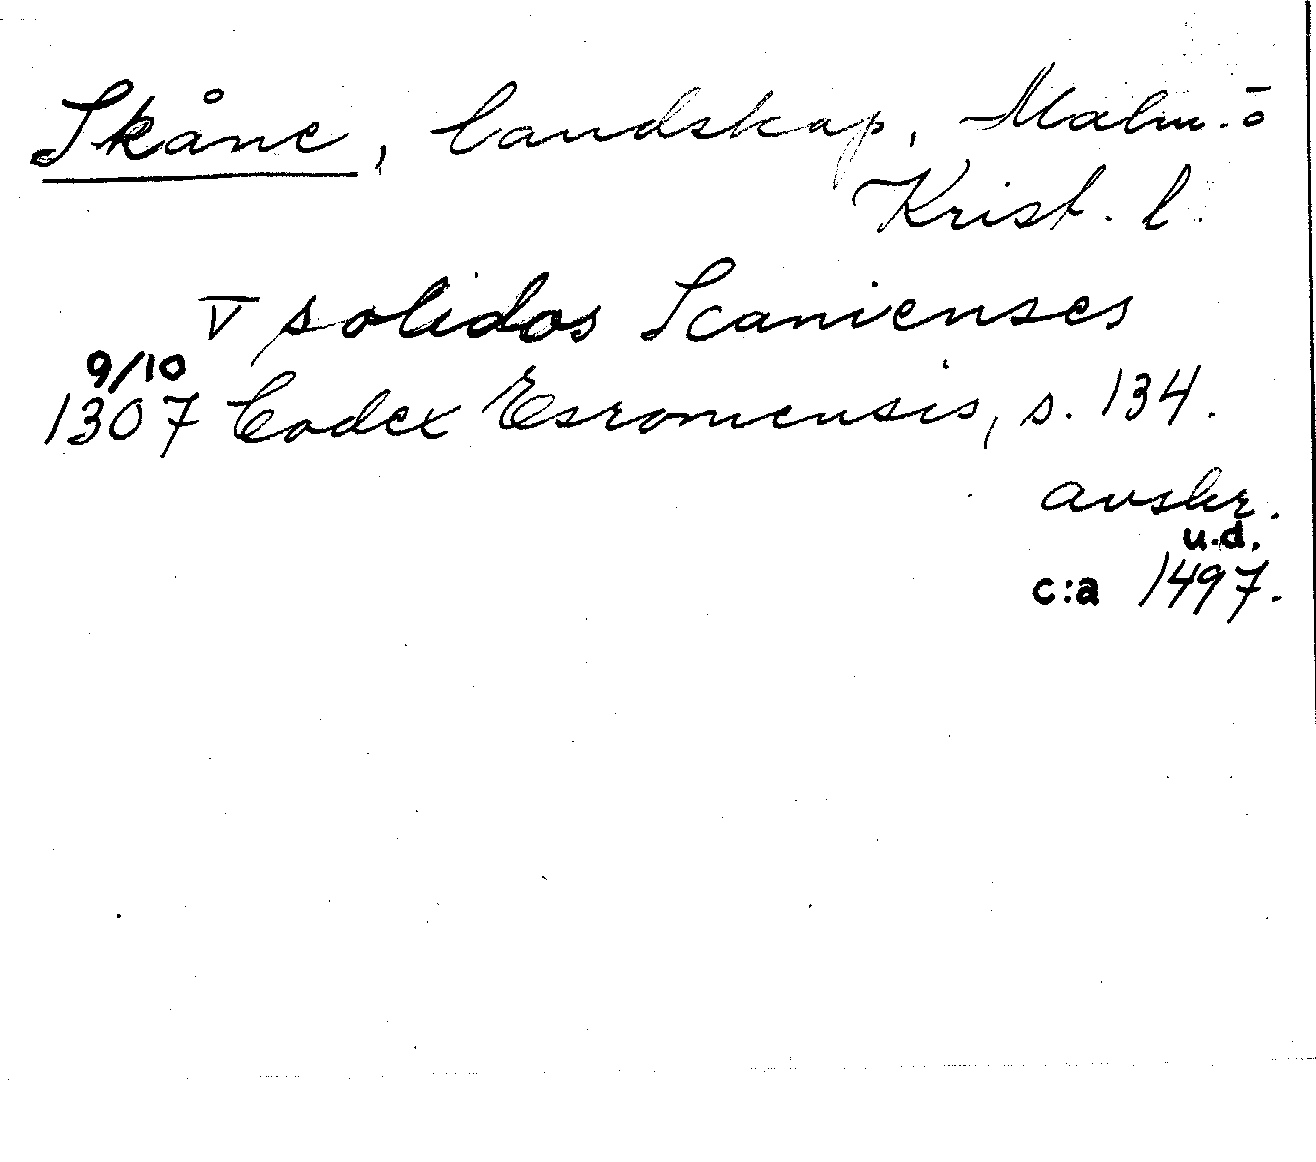 Skåne, landskap, Malm. ö
Krist. l.
V solidos Scanienses
9/10
1307 Codex Esromensis, s. 134.
avskr.
u.d.
c:a 1497.